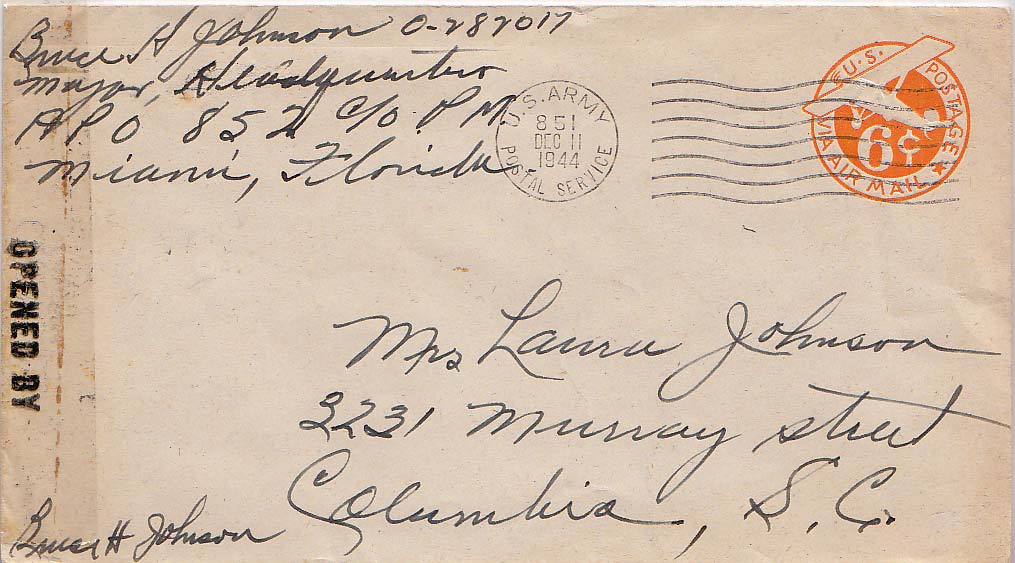 Bruce H Johnson O-287017
Major, Headquarters
APO 852 c/o PM
Miami, Florida
U.S. ARMY
851
DEC 11
1944
POSTAL SERVICE
U.S. POSTAGE
6¢
VIA AIR MAIL
OPENED BY
Mrs Laura Johnson
3231 Murray street
Columbia, S.C.
Bruce H Johnson